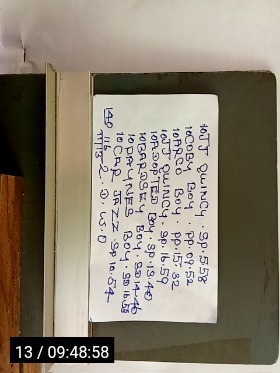 10JJ QUINCY. SP. 5.58
10COBY BOY. PP. 09.52
10ARCO BOY. PP. 15.32
10JJ QUINCY. SP. 16.59
10ADOPTED BOY. SP. 13.40
10BARDSEY BOY. SD 14.46
10PAYNES BOY. SD 16.58
10 CAR JAZZ. SP 10.54
116
2. D. W. O
13 / 09:48:58